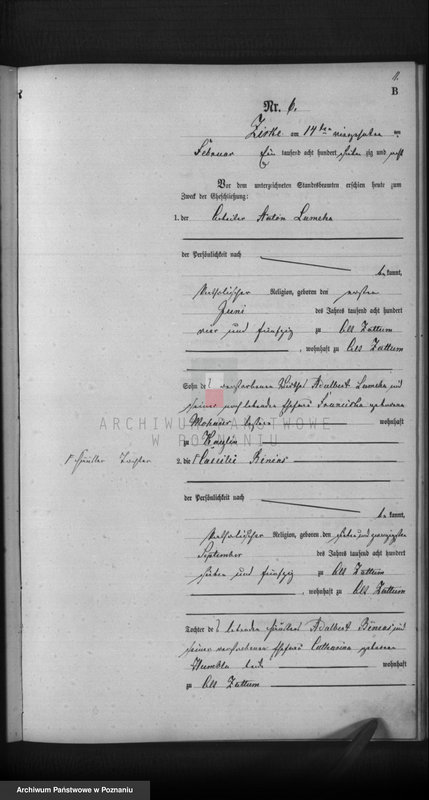 B
Nr. 6.
Zirke am 14ten vierzehnten
Februar Ein tausend acht hundert zig und
Vor dem unterzeichneten Standesbeamten erschien heute zum
Zweck der Eheschließung:
1. der Arbeiter Anton
der Persönlichkeit nach
be kannt,
katholischer Religion, geboren den ersten
Juni des Jahres tausend acht hundert
vier und fünfzig zu Alt Zattum
, wohnhaft zu Alt Zattum
Sohn des verstorbenen Adalbert und
seiner noch lebenden Ehefrau Franciska geborenen
wohnhaft
zu
Tochter 2. die Caecilie Bienias
der Persönlichkeit nach
be kannt,
katholischer Religion, geboren den sieben und zwanzigsten
September des Jahres tausend acht hundert
sieben und fünfzig zu Alt Zattum
, wohnhaft zu Alt Zattum
Tochter des lebenden Adalbert Bienias und
seiner verstorbenen Ehefrau Catharina geborenen
wohnhaft
zu Alt Zattum
ARCHIWUM PAŃSTWOWE
W POZNANIU
Archiwum Państwowe w Poznaniu